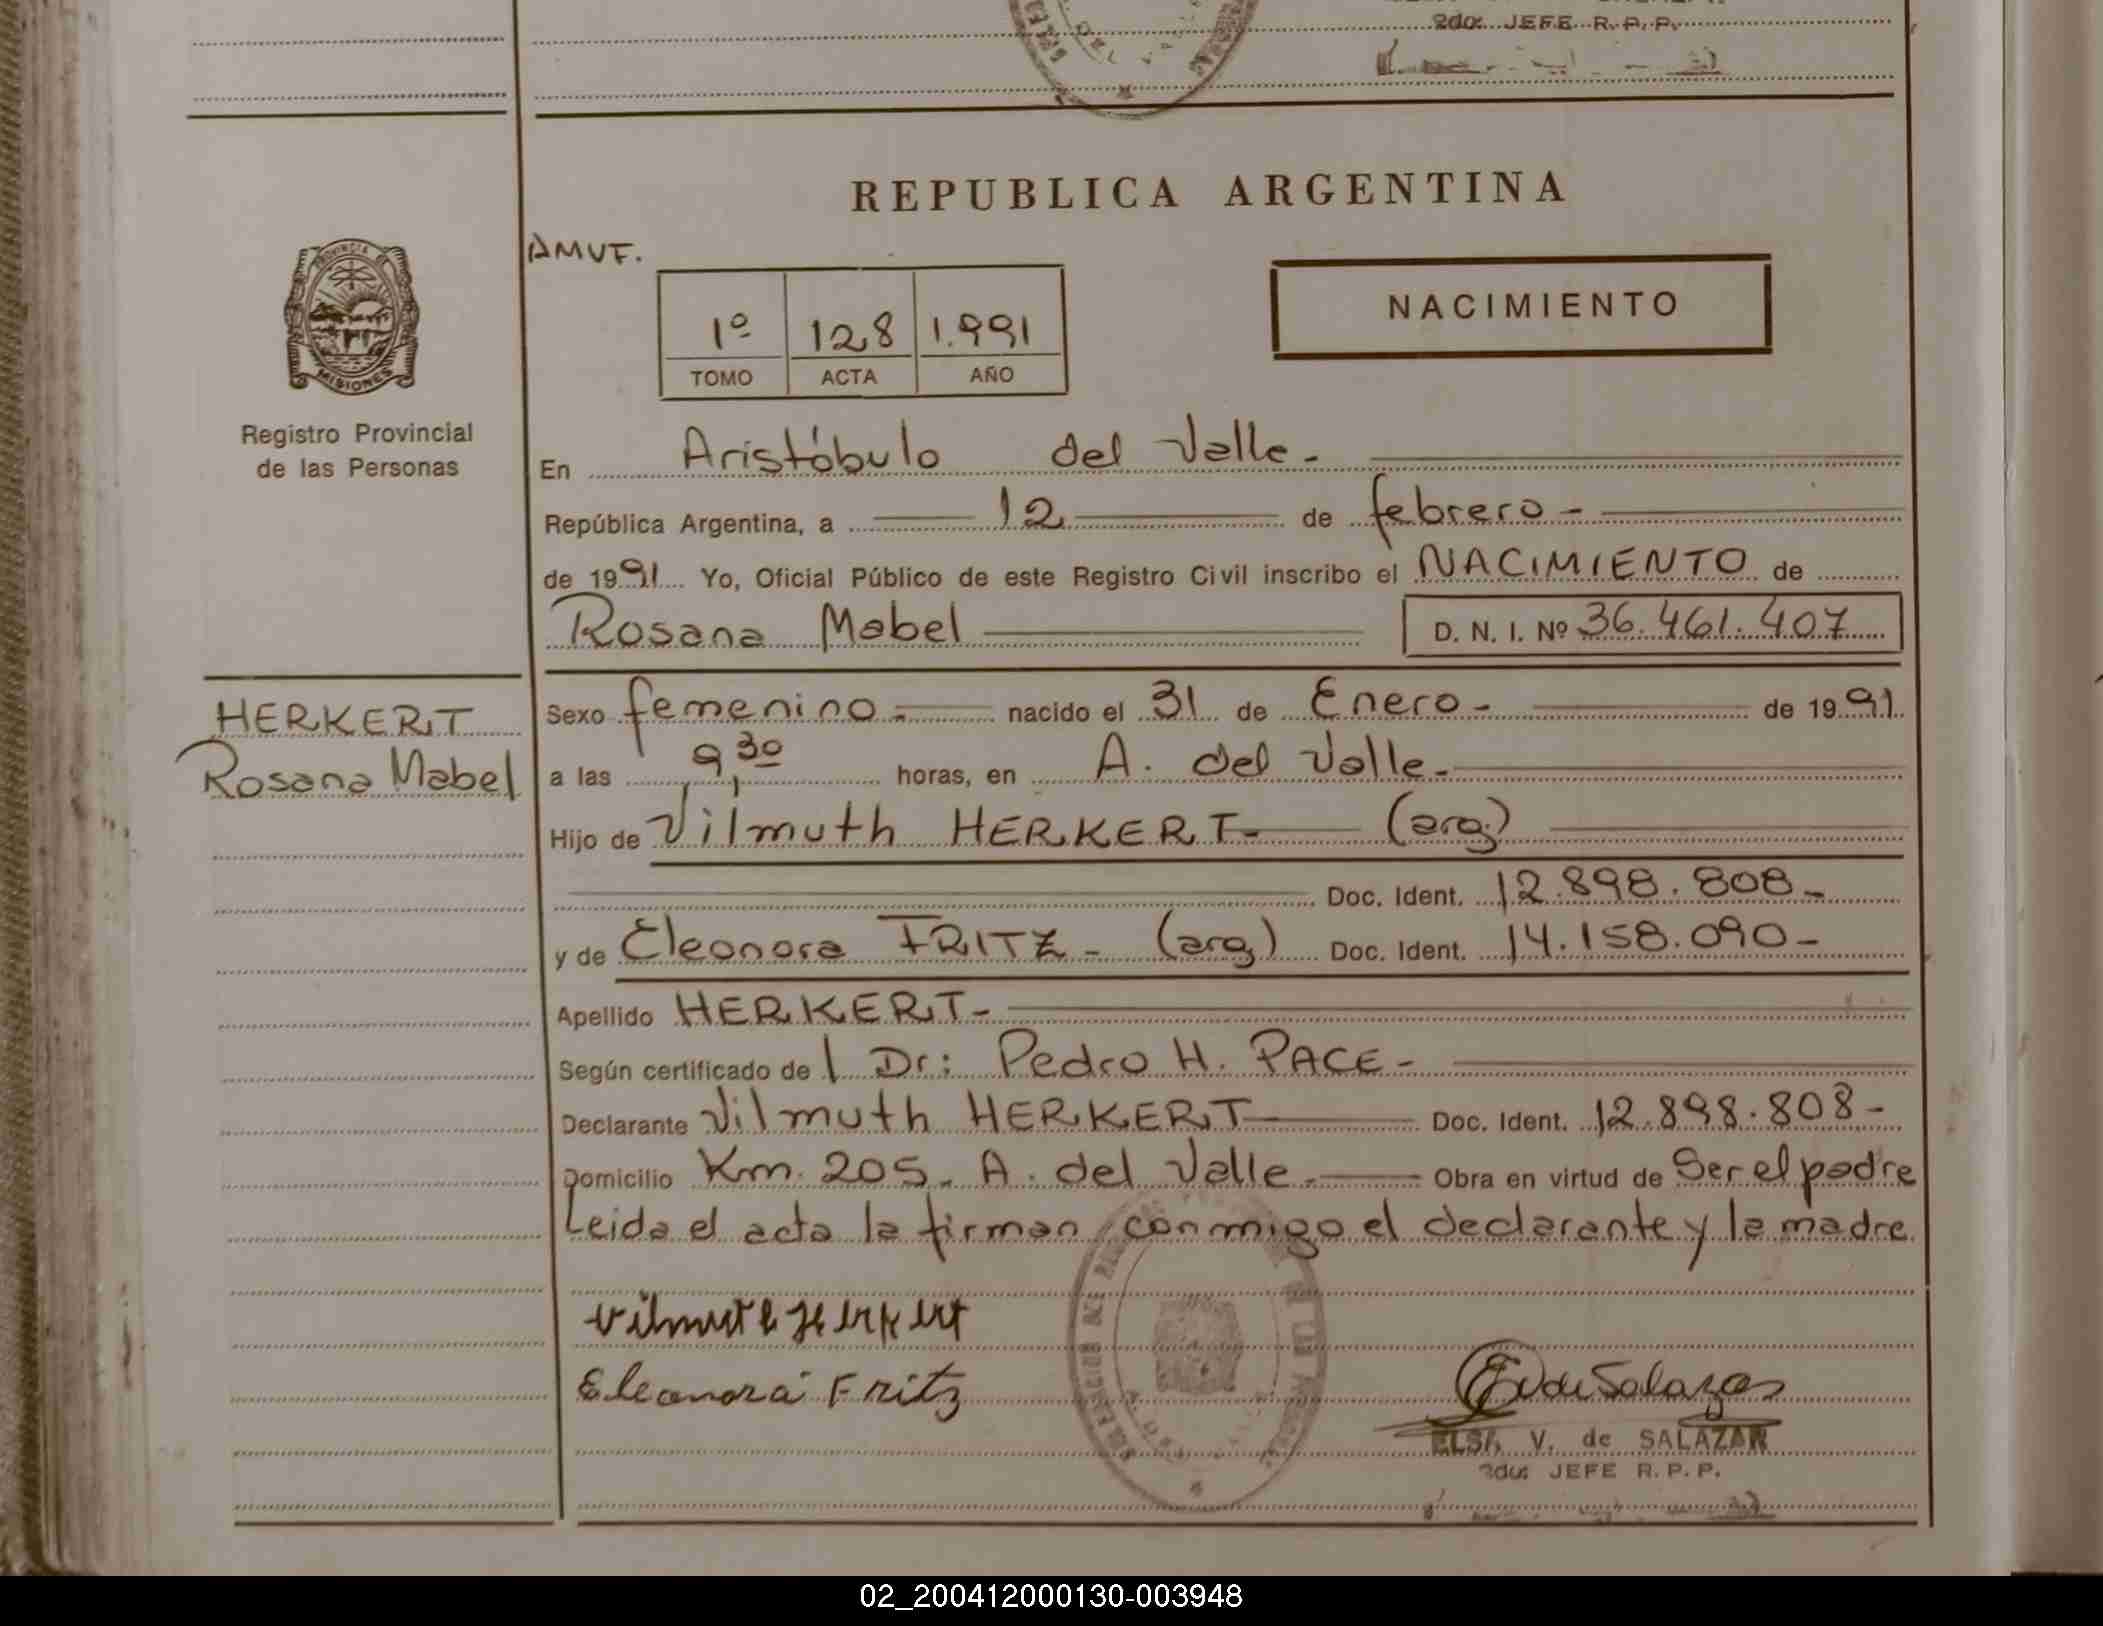 2do: JEFE R.P.P.
REPUBLICA ARGENTINA
AMVF.
NACIMIENTO
1º 128 1.991
TOMO ACTA AÑO
PROVINCIA DE
MISIONES
Registro Provincial
de las Personas
En Aristóbulo del Valle.-
República Argentina, a 12 de febrero -
de 1991 Yo, Oficial Público de este Registro Civil inscribo el NACIMIENTO de
Rosana Mabel D. N. I. Nº 36.461.407
HERKERT
Rosana Mabel
Sexo femenino.- nacido el 31 de Enero - de 1991
a las 9,30 horas, en A. del Valle.-
Hijo de Vilmuth HERKERT- (arg)
Doc. Ident. 12.898.808.-
y de Eleonora FRITZ - (arg) Doc. Ident. 14.158.090-
Apellido HERKERT-
Según certificado de l Dr: Pedro H. PACE-
Declarante Vilmuth HERKERT Doc. Ident. 12.898.808-
Domicilio Km. 205. A. del Valle.- Obra en virtud de Ser el padre
Leida el acta la firman conmigo el declarante y la madre
Vilmuth Herkert
Eleonora Fritz
EV de Salazar
ELSA V. de SALAZAR
2do: JEFE R.P.P.
02_200412000130-003948